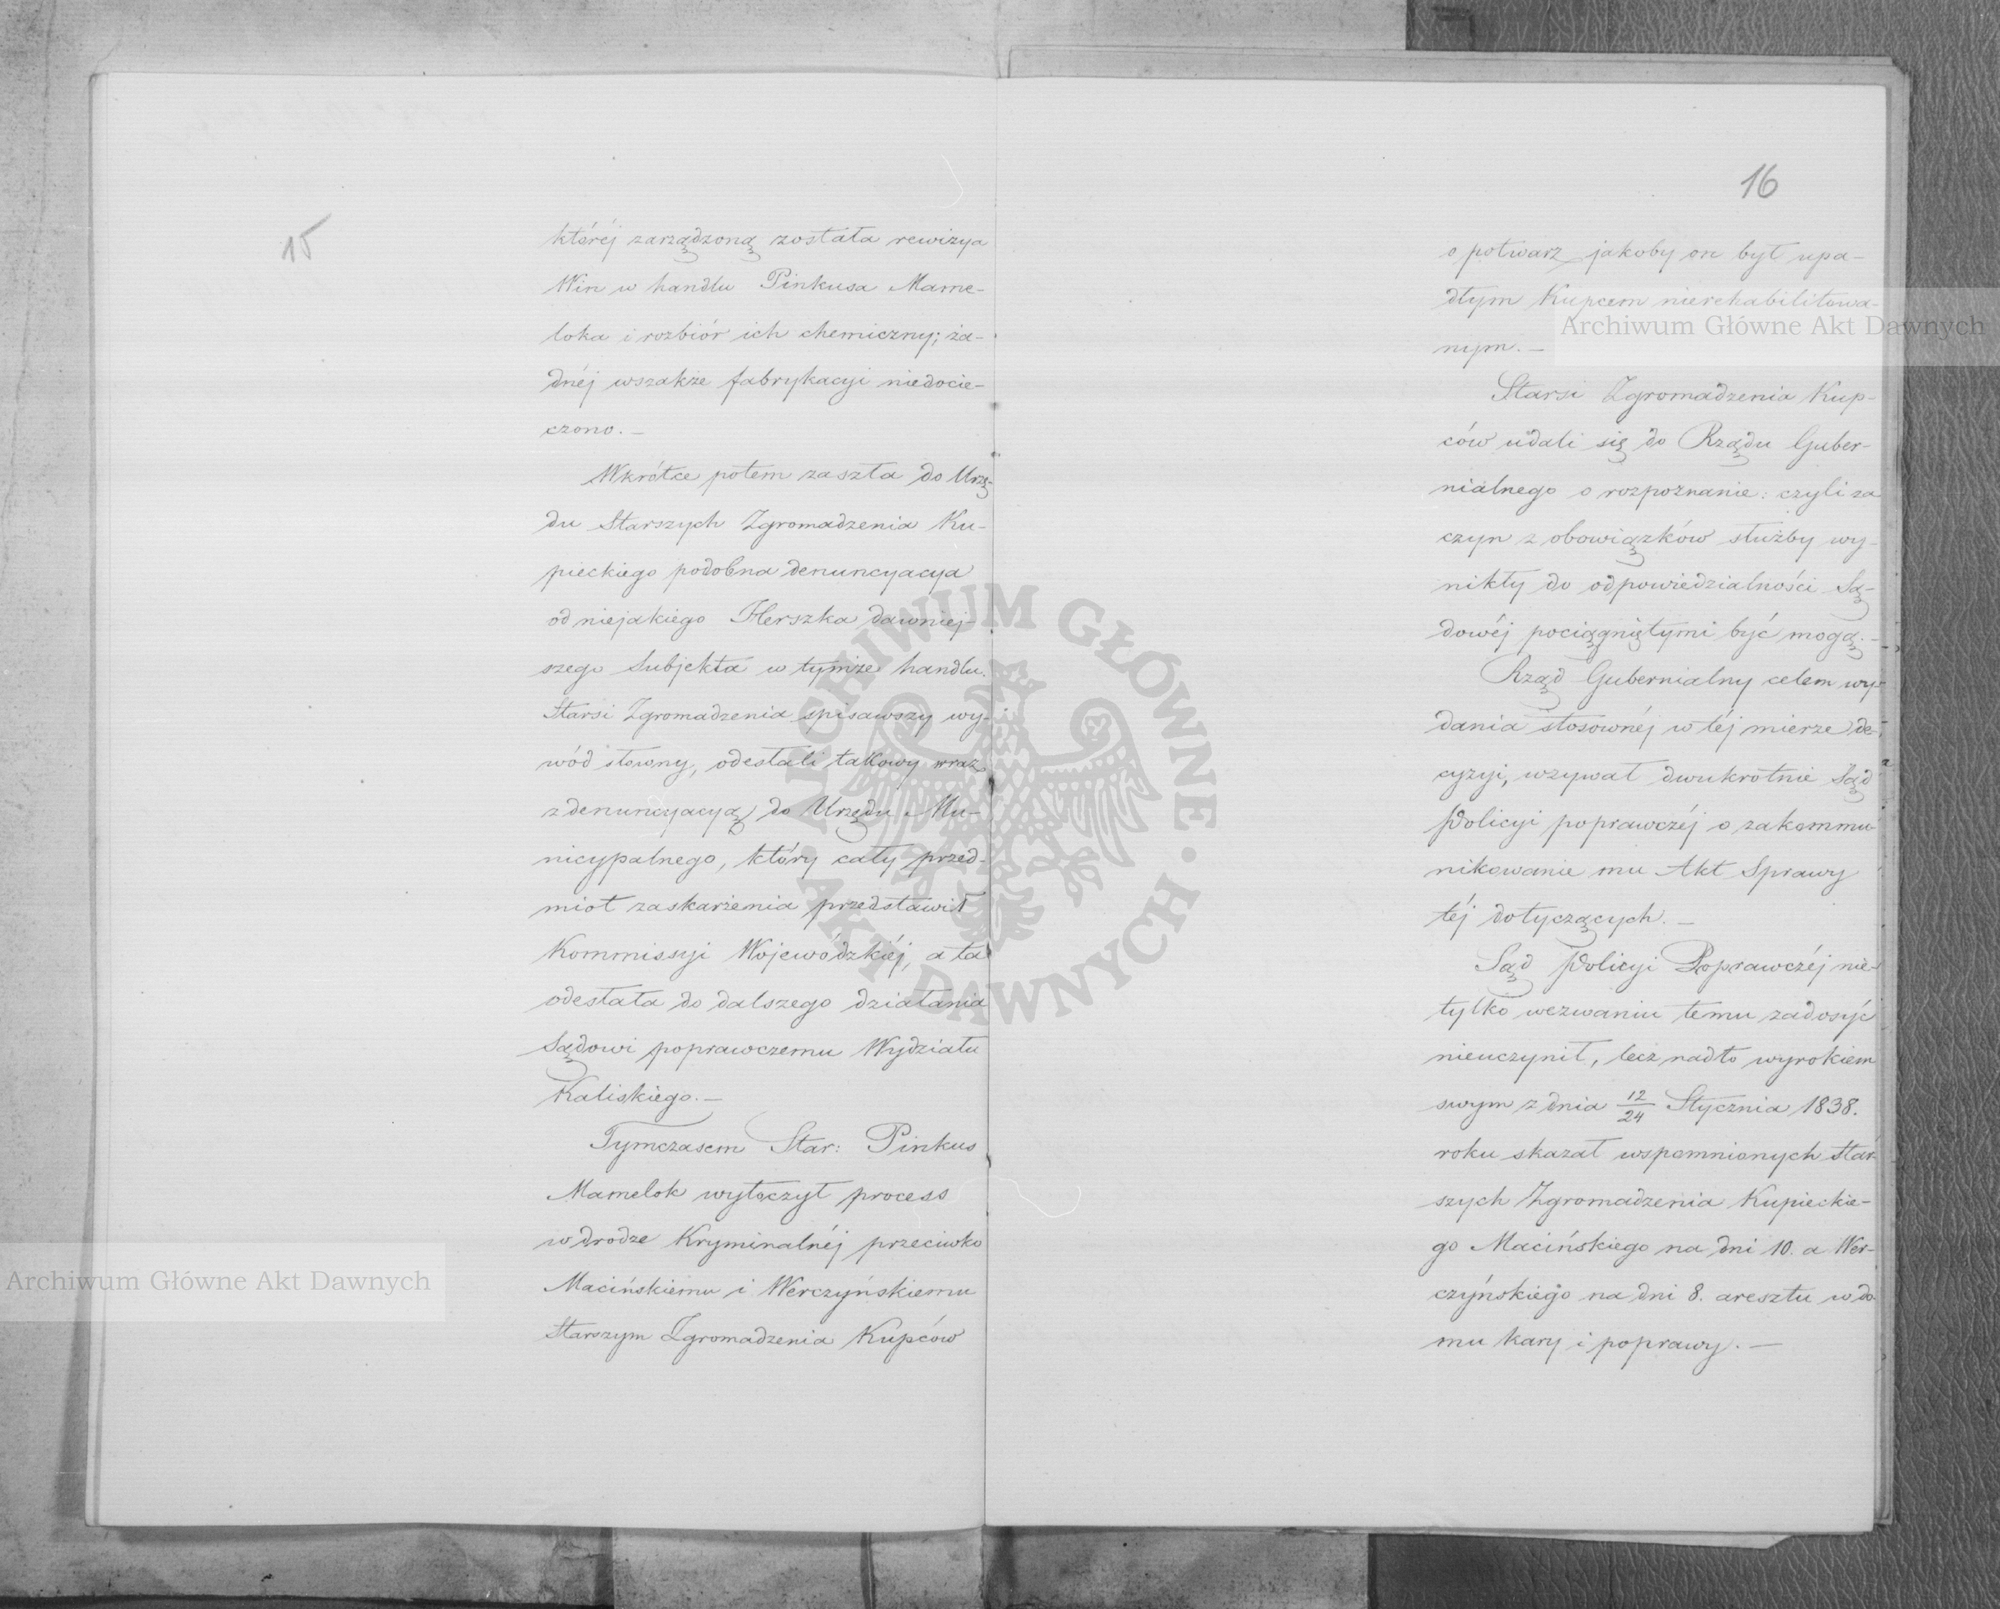 15
któréj zarządzoną została rewizya
Win w handlu Pinkusa Mame-
loka i rozbiór ich chemiczny; ża-
dnéj wszakże fabrykacyi niedocie-
czono. —
Wkrótce potem zaszła do Urzę-
du Starszych Zgromadzenia Ku-
pieckiego podobna denuncyacya
od niejakiego Herszka dawniej-
szego Subjekta w tymże handlu.
Starsi Zgromadzenia spisawszy wy-
wód słowny, odesłali takowy wraz
z denuncyacyą do Urzędu Mu-
nicypalnego, który cały przed-
miot zaskarżenia przedstawił
Kommissyi Wojewódzkiéj, a ta
odesłała do dalszego działania
Sądowi poprawczemu Wydziału
Kaliskiego. —
Tymczasem Star: Pinkus
Mamelok wytoczył process
w drodze Kryminalnéj przeciwko
Macińskiemu i Werczyńskiemu
Starszym Zgromadzenia Kupców
16
o potwarz jakoby on był upa-
dłym Kupcem nierehabilitowa-
nym. —
Starsi Zgromadzenia Kup-
ców udali się do Rządu Guber-
nialnego o rozpoznanie: czyli za
czyn z obowiązków służby wy-
nikły do odpowiedzialności Są-
dowéj pociągniętymi być mogą. —
Rząd Gubernialny celem wy-
dania stosownéj w téj mierze de-
cyzyi, wzywał dwukrotnie Sąd
Policyi poprawczéj o zakommu-
nikowanie mu Akt Sprawy
téj dotyczących. —
Sąd Policyi Poprawczéj nie-
tylko wezwaniu temu zadosyć
nieuczynił, lecz nadto wyrokiem
swym z dnia 12/24 Stycznia 1838.
roku skazał wspomnionych Star-
szych Zgromadzenia Kupieckie-
go Macińskiego na dni 10. a Wer-
czyńskiego na dni 8. aresztu w do
mu kary i poprawy. —
Archiwum Główne Akt Dawnych
Archiwum Główne Akt Dawnych
ARCHIWUM GŁÓWNE · AKT DAWNYCH ·